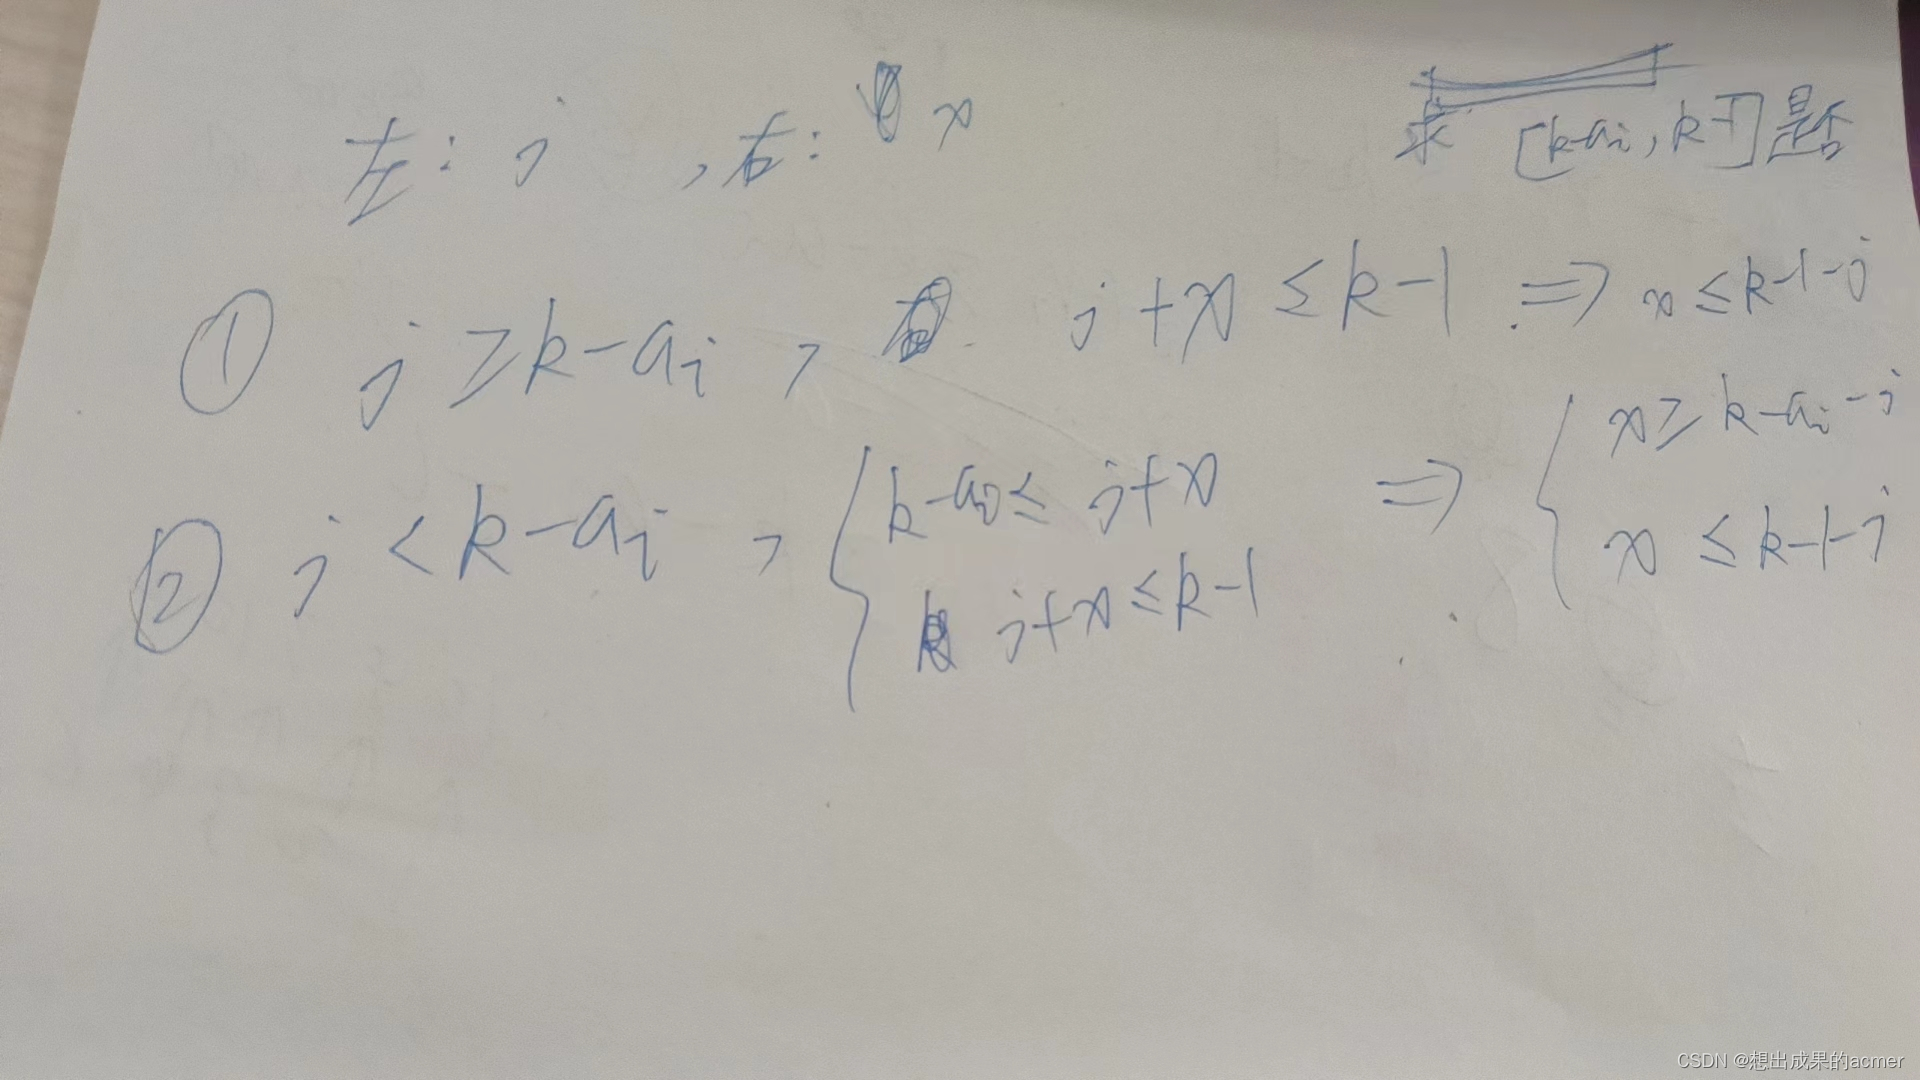 左: j , 右: x
求 [k-ai, k-1] 是否
① j ≥ k-ai , j+x ≤ k-1 ⇒ x ≤ k-1-j
② j < k-ai , { k-ai ≤ j+x ⇒ { x ≥ k-ai-j
j+x ≤ k-1 x ≤ k-1-j
CSDN @想出成果的acmer